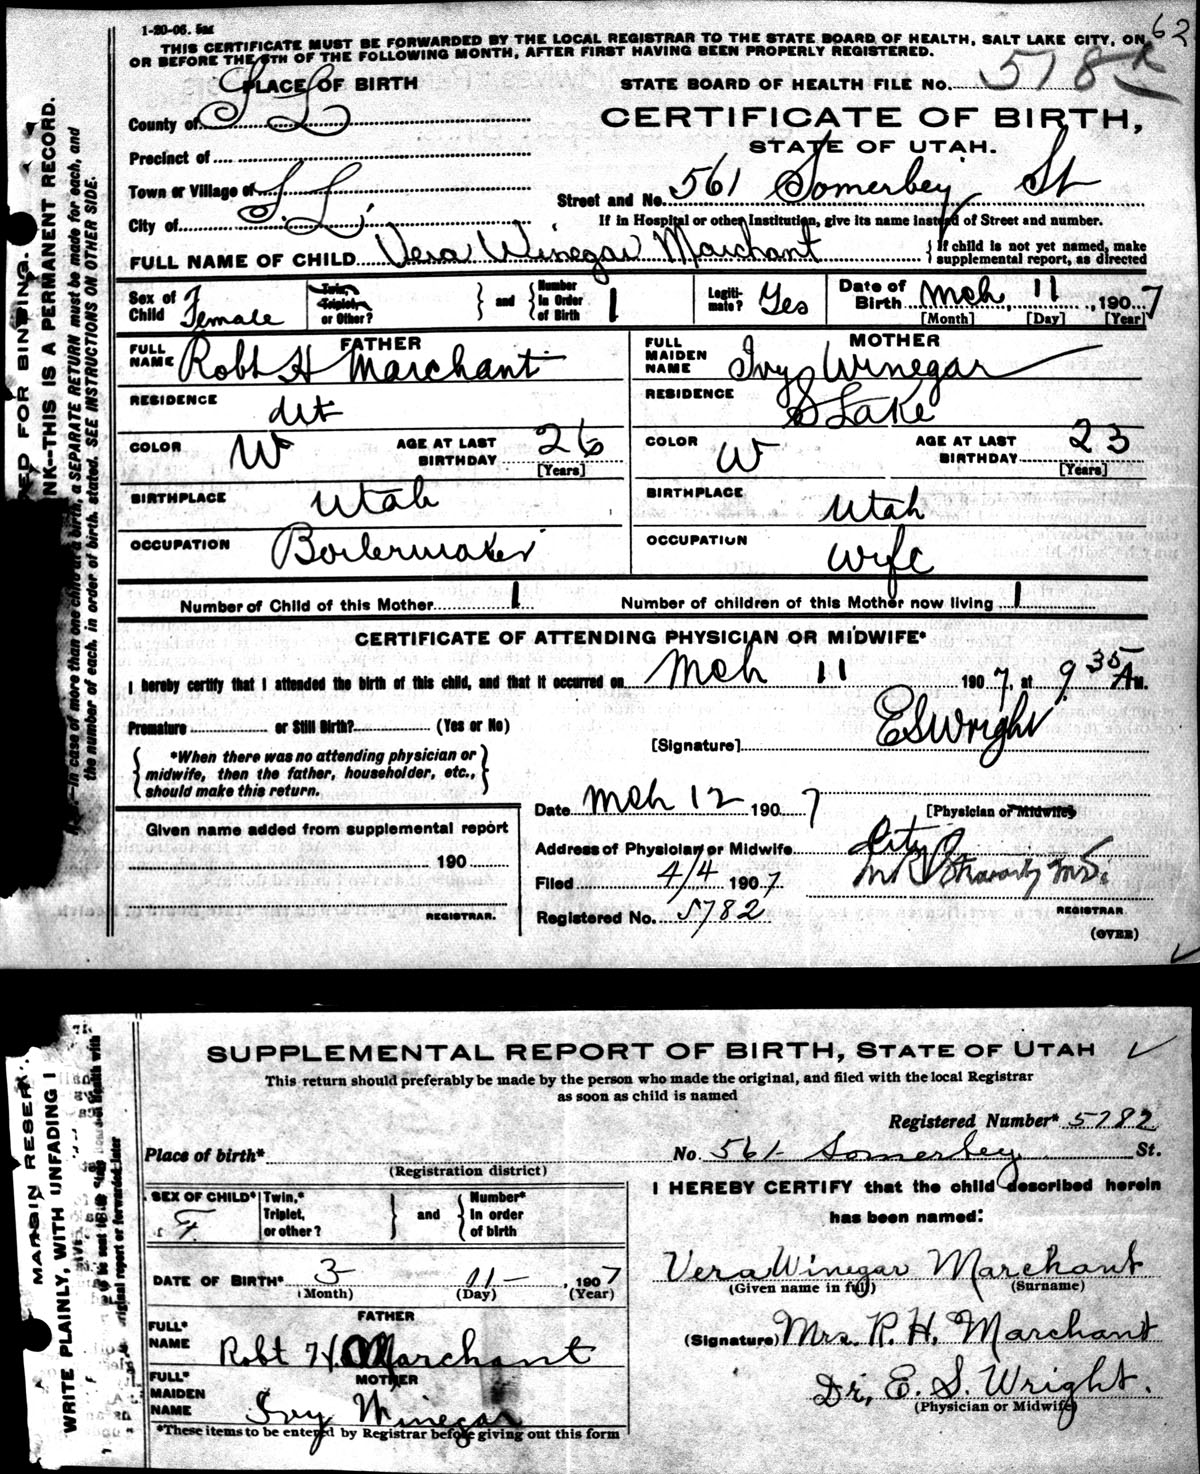 1-20-06. 5m
62
THIS CERTIFICATE MUST BE FORWARDED BY THE LOCAL REGISTRAR TO THE STATE BOARD OF HEALTH, SALT LAKE CITY, ON
OR BEFORE THE 5TH OF THE FOLLOWING MONTH, AFTER FIRST HAVING BEEN PROPERLY REGISTERED.
PLACE OF BIRTH
STATE BOARD OF HEALTH FILE No. 5782
County of S L
CERTIFICATE OF BIRTH,
STATE OF UTAH.
Precinct of
Town or Village of
Street and No. 561 Somerbey St
City of S. L.
If in Hospital or other Institution, give its name instead of Street and number.
FULL NAME OF CHILD Vera Winegar Marchant } If child is not yet named, make supplemental report, as directed
Sex of Child Female Twin, Triplet, or Other? } and { Number in Order of Birth 1 Legitimate? Yes Date of Birth Mch 11, 1907
[Month] [Day] [Year]
FATHER
FULL NAME Robt H Marchant
MOTHER
FULL MAIDEN NAME Ivy Winegar
RESIDENCE
RESIDENCE S Lake
COLOR W AGE AT LAST BIRTHDAY 26 [Years]
COLOR W AGE AT LAST BIRTHDAY 23 [Years]
BIRTHPLACE Utah
BIRTHPLACE Utah
OCCUPATION Boilermaker
OCCUPATION Wife
Number of Child of this Mother 1 Number of children of this Mother now living 1
CERTIFICATE OF ATTENDING PHYSICIAN OR MIDWIFE*
I hereby certify that I attended the birth of this child, and that it occurred on Mch 11 1907, at 9 35 A M.
Premature or Still Birth? (Yes or No)
[Signature] E S Wright
{ *When there was no attending physician or midwife, then the father, householder, etc., should make this return. }
Date Mch 12 1907
[Physician or Midwife]
Given name added from supplemental report
190
REGISTRAR.
Address of Physician or Midwife City
Filed 4/4 1907
Registered No. 5782
REGISTRAR
(OVER)
INK—THIS IS A PERMANENT RECORD.
—In case of more than one child at a birth, a SEPARATE RETURN must be made for each, and
the number of each, in order of birth, stated. SEE INSTRUCTIONS ON OTHER SIDE.
SUPPLEMENTAL REPORT OF BIRTH, STATE OF UTAH
This return should preferably be made by the person who made the original, and filed with the local Registrar
as soon as child is named
Registered Number* 5782
Place of birth* No. 561 Somerbey St.
(Registration district)
SEX OF CHILD* F. Twin,* Triplet, or other? } and { Number* In order of birth
I HEREBY CERTIFY that the child described herein
has been named:
DATE OF BIRTH* 3 11 , 1907
(Month) (Day) (Year)
Vera Winegar Marchant
(Given name in full) (Surname)
FATHER
FULL* NAME Robt H. Marchant
(Signature) Mrs. R. H. Marchant
MOTHER
FULL* MAIDEN NAME Ivy Winegar
Dr. E. S. Wright.
(Physician or Midwife)
*These items to be entered by Registrar before giving out this form
MARGIN RESER
WRITE PLAINLY, WITH UNFADING I